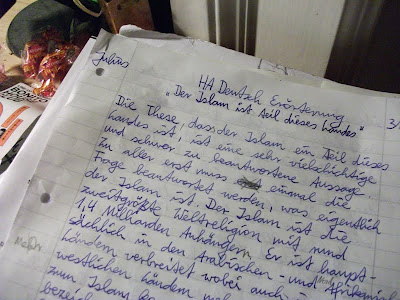 Julius
HA Deutsch Erörterung
3/
„Der Islam ist teil dieses Landes"
Die These, dass der Islam ein Teil dieses
Landes ist, ist eine sehr vielschichtige
und schwer zu beantwortene Aussage.
Zu aller erst muss einmal die
Frage beantwortet werden, was eigentlich
der Islam ist. Der Islam ist die
zweitgrößte Weltreligion mit rund
1,4 Milliarden Anhängern. Er ist haupt-
sächlich in den Arabischen- und
Ländern verbreitet wobei auch in
westlichen Ländern
zum Islam